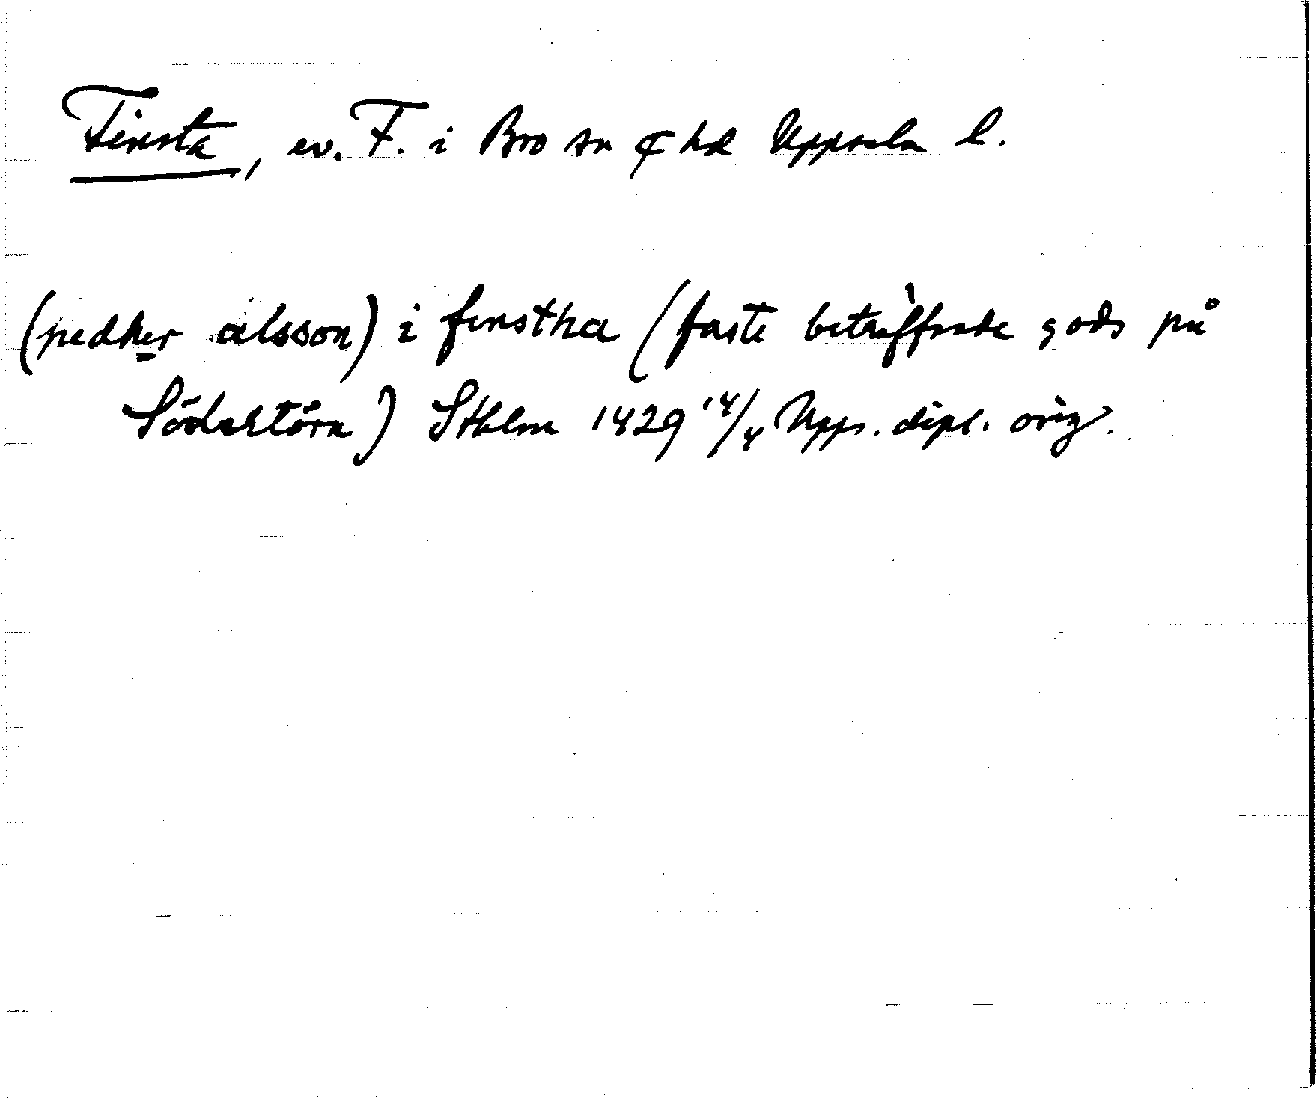 Finsta, ev. F. i Bro sn ȼ hd Uppsala l.
(pedher alsson) i finstha (faste beträffande gods på
Södertörn) Sthlm 1429 14/4 Upps. dipl. orig.